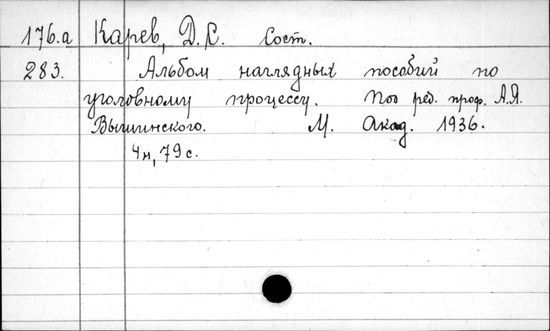 176.а Карев, Д.С. Сост.
283. Альбом наглядных пособий по
уголовному процессу. Под ред. проф. А.Я.
Вышинского. М. Акад. 1936.
4н, 79с.